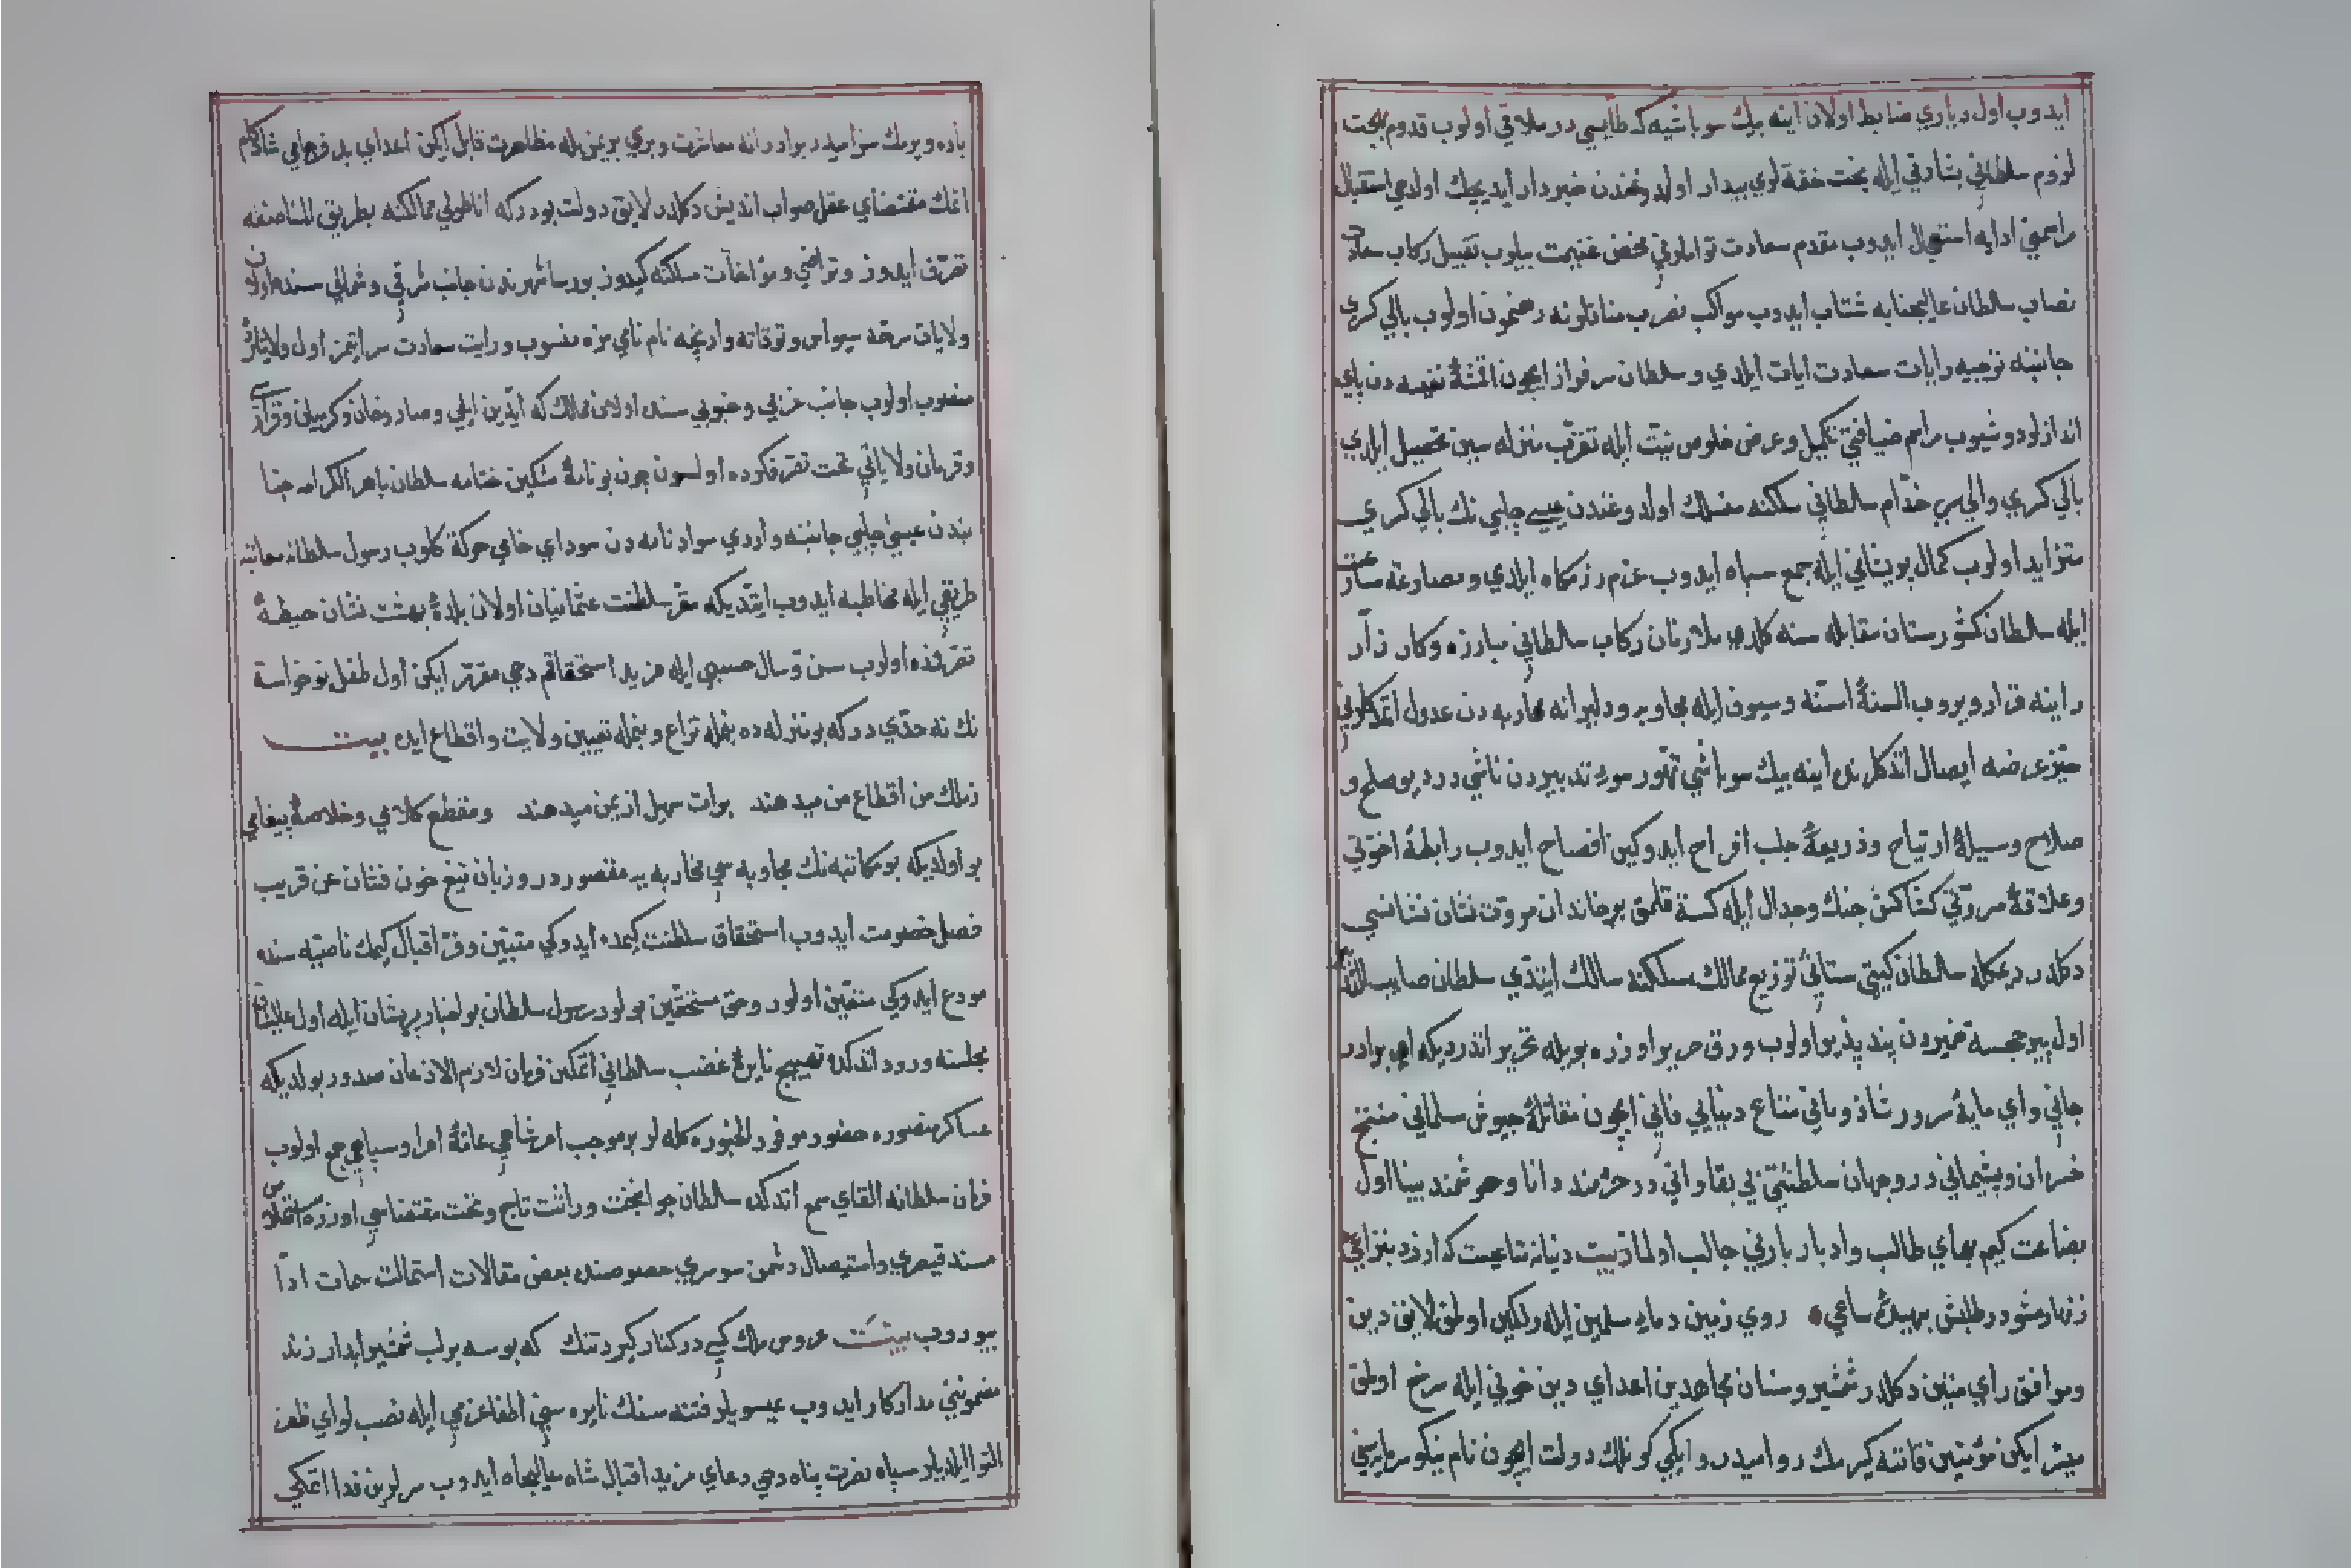 ايدوب اول دياري ضابط اولان اينه بيك سوباشيه كه طابسي در ملاقي اولوب قدوم بهجت
لزوم سلطاني بشارتي ايله بخت خفته لري بيدار اولدوغندن خبردار ايديجك اولدخي استقبال
مراسمني ادايه استعجال ايدوب مقدم سعادت توامलरني محض غنيمت بيلوب تقبيل ركاب سعادت
نصاب سلطان عاليجنابه شتاب ايدوب مواكب نصرت مناقبلرينه رهنمون اولوب بالي كسري
جانبنه توجيه رايات سعادت ايات ايلدي وسلطان سرفراز ايچون اقمشۀ نفيسه دن پاي
انداز لر دوشيوب مراسم ضيافتي تكميل وعرض خلوص نيت ايله تقرب منزله سين تحصيل ايلدي
بالي كسري واليسي خدام سلطاني سلكنه منسلك اولدوغندن عيسي چلبي نك بالي كسري
متزايد اولوب كمال پريشاني ايله جمع سپاه ايدوب عزم رزمكاه ايلدي ومصارعه
ايله سلطان كشورستان مقابله سنه كلدي ملازمان ركاب سلطاني مبارزه وكارزار
راينه قرار ويروب السنۀ اسنه وسيوف ايله مجاوبه ودليرانه محاربه دن عدول اتمدكلرني
حيز عرضه ايصال اتدكلرنده اينه بيك سوباشي تهور سوء تدبيردن ناشي در ديو صلح و
صلاح وسيلۀ ارتياح وذريعۀ جلب افراح ايدوكين افصاح ايدوب رابطۀ اخوتي
وعلاقۀ مروتي كشاكش جنك وجدال ايله كسته قلمق بر خاندان مروت نشان نشانسي
دكلدر ديمكله سلطان كيتي ستاني توزيع ممالك مسلكنه سالك ايتدي سلطان صايب
اول پير خجسته ضميردن پند پذير اولوب ورق حرير اوزره بويله تحرير اتدرديكه اي برادر
جاني واي مايۀ سرور شادماني متاع دنيايي فاني ايچون مقاتلۀ جيوش سلماني منتج
خسران وپشيماني در وجهان سلطنتي بي بقا واني در خردمند دانا وهوشمند بينا اول
بضاعت كيم بهاي طالب وادبار بارني جالب اولماز بيت دنيا نه متاعيست كه ارزد بنزاعي
زنهار مشو در طلبش بهيده ساعي روي زميني دماء مسلمين ايله رنكين اولمق لايق دين
وموافق راي متين دكلدر شمشير وسنان مجاهدين اعداي دين خوني ايله سرخ اولمق
ميسر ايكن مؤمنين قاننه كيرمك روا ميدر و ايكي كونلك دولت ايچون نام نيكو سرمايه سني
باده ويرمك سزا ميدر برادرانه معاشرت وبري بريمزله مظاهرت قابل ايكن اعداي بدفرجامي شادكام
اتمك مقتضاي عقل صواب انديش دكلدر لايق دولت بودركه اناطولي ممالكنه بطريق المناصفه
تصرف ايدوز وتراضي ومؤاخات مسلكنه كيدوز بورسا شهرندن جانب شرقي وشمالي سنده اولان
ولايات سرحد سيواس وتوقاته وارنجه نام نامي مزه منسوب ورايت سعادت سرايتمز اول ولايتلرده
منصوب اولوب جانب غربي وجنوبي سنده اولان ممالك كه ايدين ايلي وصاروخان وكرميان وقراسي
وقرمان ولاياتي تحت تصرفكوزده اولسون چون بو نامۀ مشكين ختامه سلطان باهر الكرامه
عيسي چلبي جانبنه واردي سواد نامه دن سوداي خامي حركته كلوب رسول سلطانه معاتبه
طريقي ايله مخاطبه ايدوب ايتديكه مقر سلطنت عثمانيان اولان بلدۀ بهشت نشان حيطۀ
تصرفمده اولوب سن وسال حسبي ايله مزيد استحقاقم دخي مقرر ايكن اول طفل نوخواسته
نك نه حدي دركه بو منزله ده بنمله نزاع وبنمله تعيين ولايت واقطاع ايده بيت
زملك من اقطاع من ميدهند برات سهيل از يمن ميدهند ومقطع كلامي وخلاصۀ پيغامي
بو اولديكه بو مكاتبه نك مجاوبه سي محاربه يه مقصوردر وزبان تيغ خون فشان عن قريب
فصل خصومت ايدوب استحقاق سلطنت كيمده ايدوكي متبين وفر اقبال كيمك ناصيه سنده
مودع ايدوكي متعين اولور وحق مستحقين بولور رسول سلطان بو اخبار پريشان ايله اول عاليشان
مجلسنه ورود اتدكده تهييج نايرۀ غضب سلطاني اتمكين فرمان لازم الاذعان صدور بولديكه
عساكر منصوره حضور موفور الحبوره كله لر بر موجب امر شاهي عامۀ امرا وسپاهي جمع اولوب
فرمان سلطانه القاي سمع اتدكده سلطان جوانبخت وراثت تاج وتخت مقتضاسي اوزره
مسند قيصري واستيصال دشمن سرسري خصوصنده بعض مقالات استمالت سمات ادا
بيوروب بيت عروس ملك كسي در كنار كيرد تنك كه بوسه بر لب شمشير ابدار زند
مضمونني مدار كار ايدوب عيسويلر فتنه سنك نايره سني اطفا عزمي ايله نصب لواي ظفر
التوا ايلديلر سپاه نصرت پناه دخي دعاي مزيد اقبال شاه عاليجاه ايدوب سرلرين فدا اتمكي